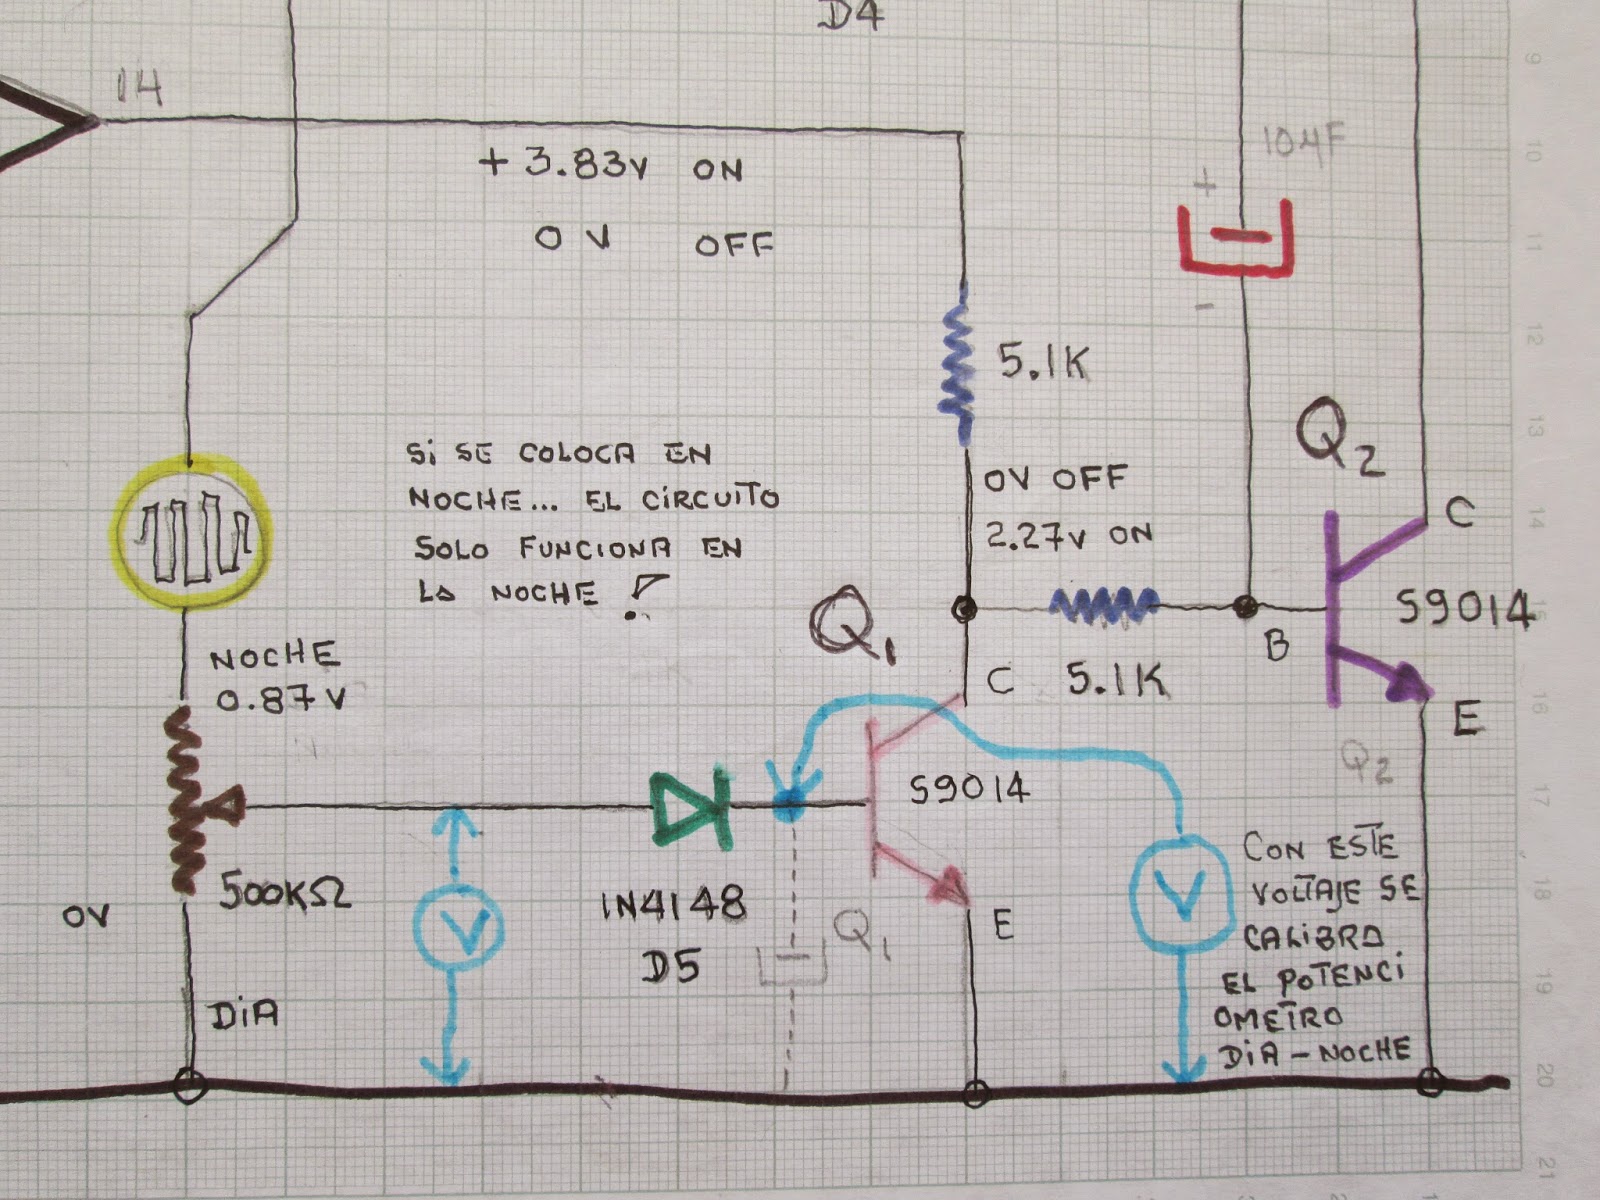 D4
14
+3.83V ON
0 V OFF
10µF
+
-
5.1K
Q2
C
SI SE COLOCA EN
NOCHE... EL CIRCUITO
SOLO FUNCIONA EN
LA NOCHE !
0V OFF
2.27V ON
S9014
B
E
Q2
NOCHE
0.87V
Q1
C
5.1K
S9014
500KΩ
0V
DIA
V
1N4148
D5
Q1
E
V
CON ESTE
VOLTAJE SE
CALIBRA
EL POTENCI
OMETRO
DIA - NOCHE
9
10
11
12
13
14
15
16
17
18
19
20
21